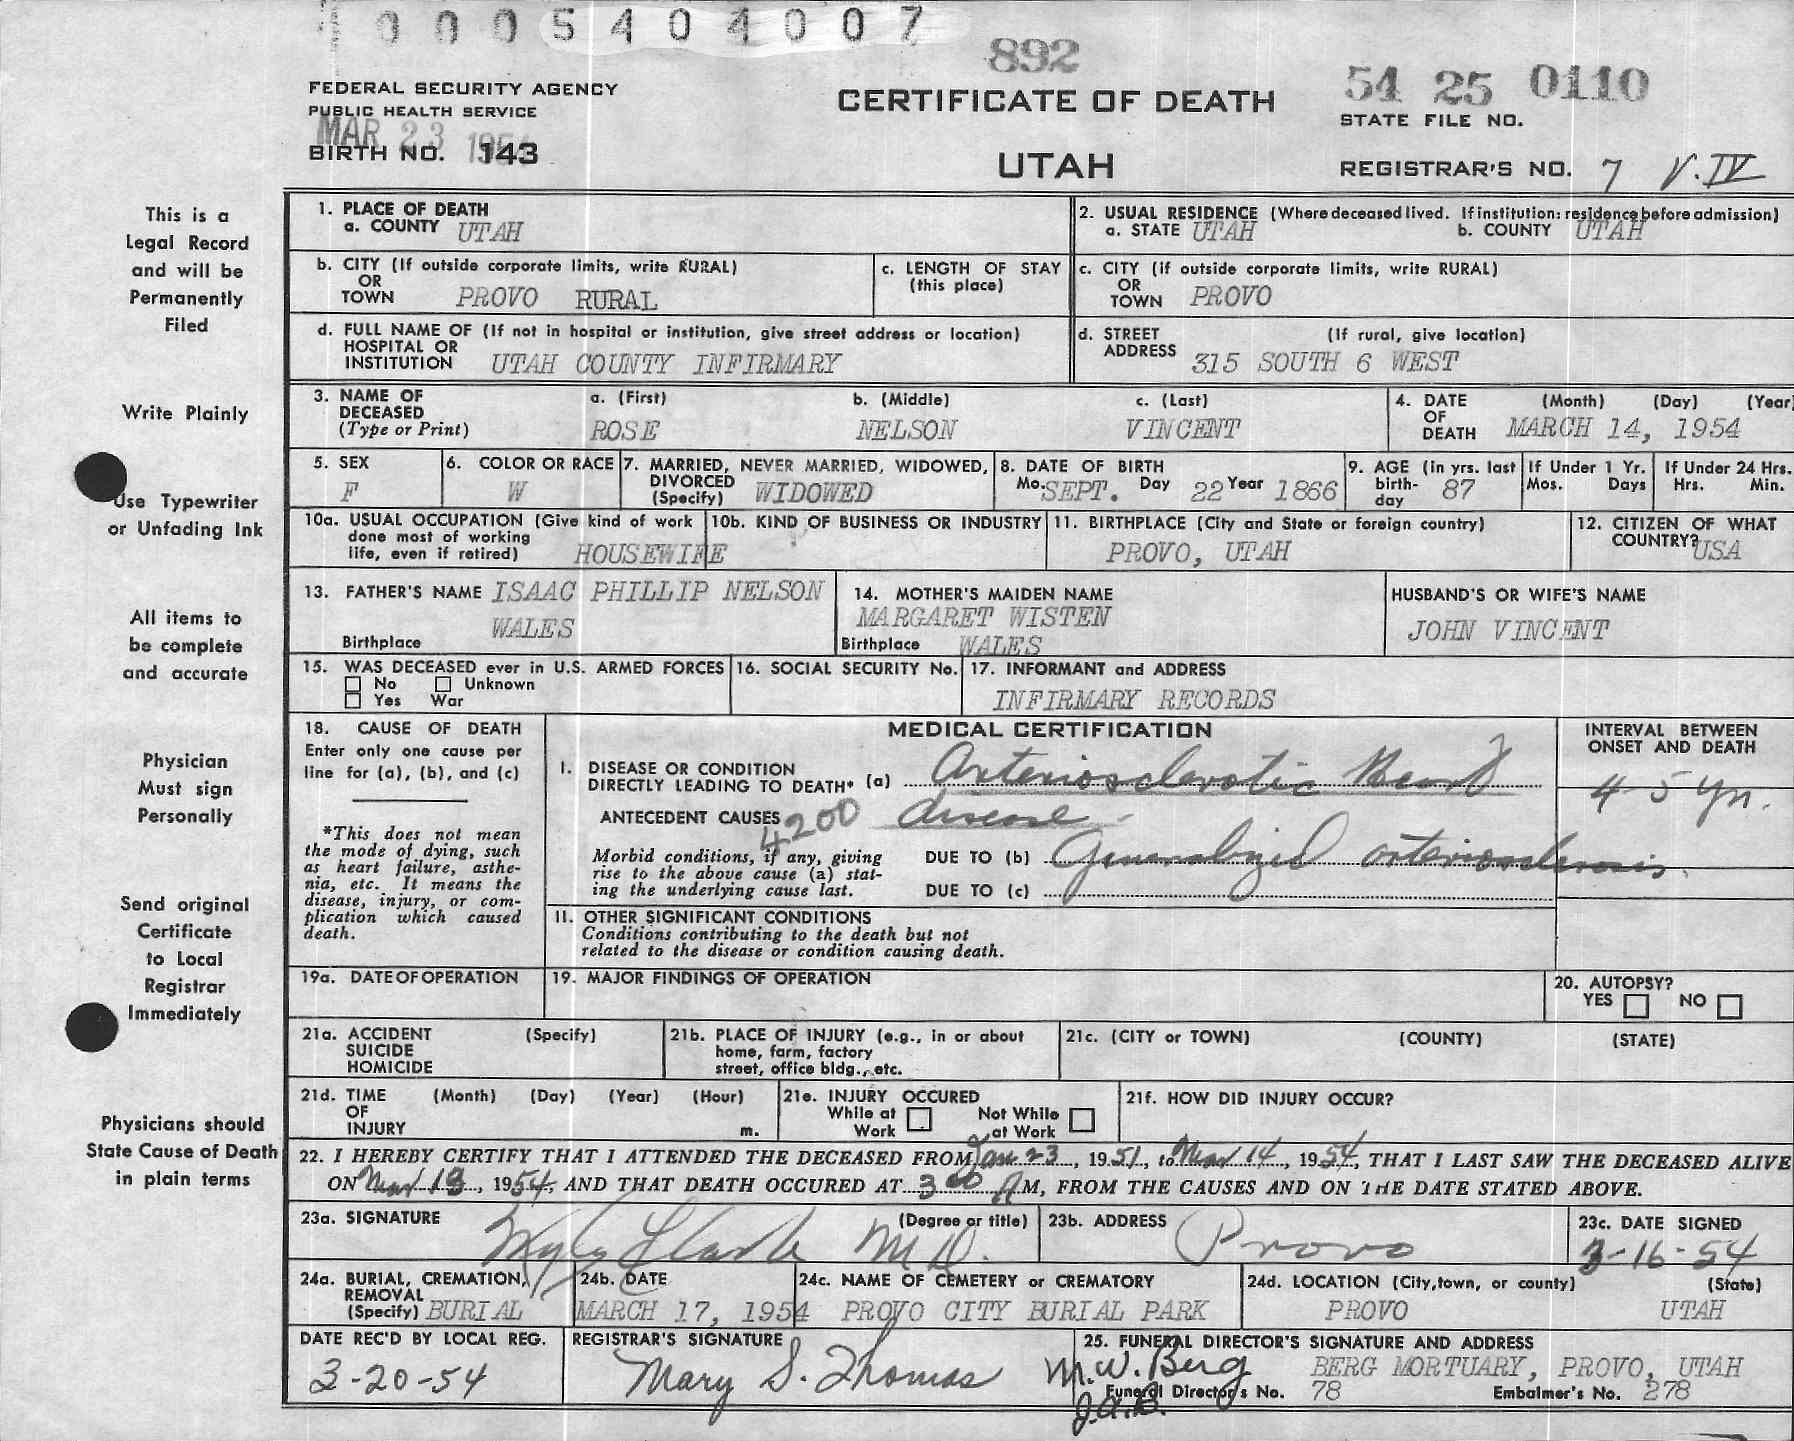 0005404007
892
FEDERAL SECURITY AGENCY
PUBLIC HEALTH SERVICE
MAR 23 195
BIRTH NO. 143
CERTIFICATE OF DEATH
UTAH
54 25 0110
STATE FILE NO.
REGISTRAR'S NO. 7 V. IV
This is a
Legal Record
and will be
Permanently
Filed
Write Plainly
Use Typewriter
or Unfading Ink
All items to
be complete
and accurate
Physician
Must sign
Personally
Send original
Certificate
to Local
Registrar
Immediately
Physicians should
State Cause of Death
in plain terms
1. PLACE OF DEATH
a. COUNTY UTAH
2. USUAL RESIDENCE (Where deceased lived. If institution: residence before admission)
a. STATE UTAH b. COUNTY UTAH
b. CITY (If outside corporate limits, write RURAL)
OR
TOWN PROVO RURAL
c. LENGTH OF STAY
(this place)
c. CITY (if outside corporate limits, write RURAL)
OR
TOWN PROVO
d. FULL NAME OF (If not in hospital or institution, give street address or location)
HOSPITAL OR
INSTITUTION UTAH COUNTY INFIRMARY
d. STREET (If rural, give location)
ADDRESS 315 SOUTH 6 WEST
3. NAME OF a. (First) b. (Middle) c. (Last)
DECEASED
(Type or Print) ROSE NELSON VINCENT
4. DATE (Month) (Day) (Year)
OF
DEATH MARCH 14, 1954
5. SEX
F
6. COLOR OR RACE
W
7. MARRIED, NEVER MARRIED, WIDOWED,
DIVORCED
(Specify) WIDOWED
8. DATE OF BIRTH
Mo. SEPT. Day 22 Year 1866
9. AGE (in yrs. last
birth-
day 87
If Under 1 Yr.
Mos. Days
If Under 24 Hrs.
Hrs. Min.
10a. USUAL OCCUPATION (Give kind of work
done most of working
life, even if retired) HOUSEWIFE
10b. KIND OF BUSINESS OR INDUSTRY
11. BIRTHPLACE (City and State or foreign country)
PROVO, UTAH
12. CITIZEN OF WHAT
COUNTRY? USA
13. FATHER'S NAME ISAAC PHILLIP NELSON
Birthplace WALES
14. MOTHER'S MAIDEN NAME
MARGARET WISTEN
Birthplace WALES
HUSBAND'S OR WIFE'S NAME
JOHN VINCENT
15. WAS DECEASED ever in U.S. ARMED FORCES
No Unknown
Yes War
16. SOCIAL SECURITY No.
17. INFORMANT and ADDRESS
INFIRMARY RECORDS
18. CAUSE OF DEATH
Enter only one cause per
line for (a), (b), and (c)
*This does not mean
the mode of dying, such
as heart failure, asthe-
nia, etc. It means the
disease, injury, or com-
plication which caused
death.
MEDICAL CERTIFICATION
I. DISEASE OR CONDITION
DIRECTLY LEADING TO DEATH* (a) Arteriosclerotic Heart
ANTECEDENT CAUSES 4200 disease
Morbid conditions, if any, giving
rise to the above cause (a) stat-
ing the underlying cause last.
DUE TO (b) Generalized arteriosclerosis.
DUE TO (c)
INTERVAL BETWEEN
ONSET AND DEATH
4-5 yr.
II. OTHER SIGNIFICANT CONDITIONS
Conditions contributing to the death but not
related to the disease or condition causing death.
19a. DATE OF OPERATION
19. MAJOR FINDINGS OF OPERATION
20. AUTOPSY?
YES NO
21a. ACCIDENT (Specify)
SUICIDE
HOMICIDE
21b. PLACE OF INJURY (e.g., in or about
home, farm, factory
street, office bldg., etc.
21c. (CITY or TOWN) (COUNTY) (STATE)
21d. TIME (Month) (Day) (Year) (Hour)
OF
INJURY m.
21e. INJURY OCCURED
While at Work Not While at Work
21f. HOW DID INJURY OCCUR?
22. I HEREBY CERTIFY THAT I ATTENDED THE DECEASED FROM Jan 23, 1951, to Mar 14, 1954, THAT I LAST SAW THE DECEASED ALIVE
ON Mar 13, 1954, AND THAT DEATH OCCURED AT 3 00 AM, FROM THE CAUSES AND ON THE DATE STATED ABOVE.
23a. SIGNATURE (Degree or title)
Clark M.D.
23b. ADDRESS
Provo
23c. DATE SIGNED
3-16-54
24a. BURIAL, CREMATION,
REMOVAL
(Specify) BURIAL
24b. DATE
MARCH 17, 1954
24c. NAME OF CEMETERY or CREMATORY
PROVO CITY BURIAL PARK
24d. LOCATION (City, town, or county) (State)
PROVO UTAH
DATE REC'D BY LOCAL REG.
3-20-54
REGISTRAR'S SIGNATURE
Mary S. Thomas
25. FUNERAL DIRECTOR'S SIGNATURE AND ADDRESS
M.W. Berg BERG MORTUARY, PROVO, UTAH
Funeral Director's No. 78 Embalmer's No. 278
J.A.B.